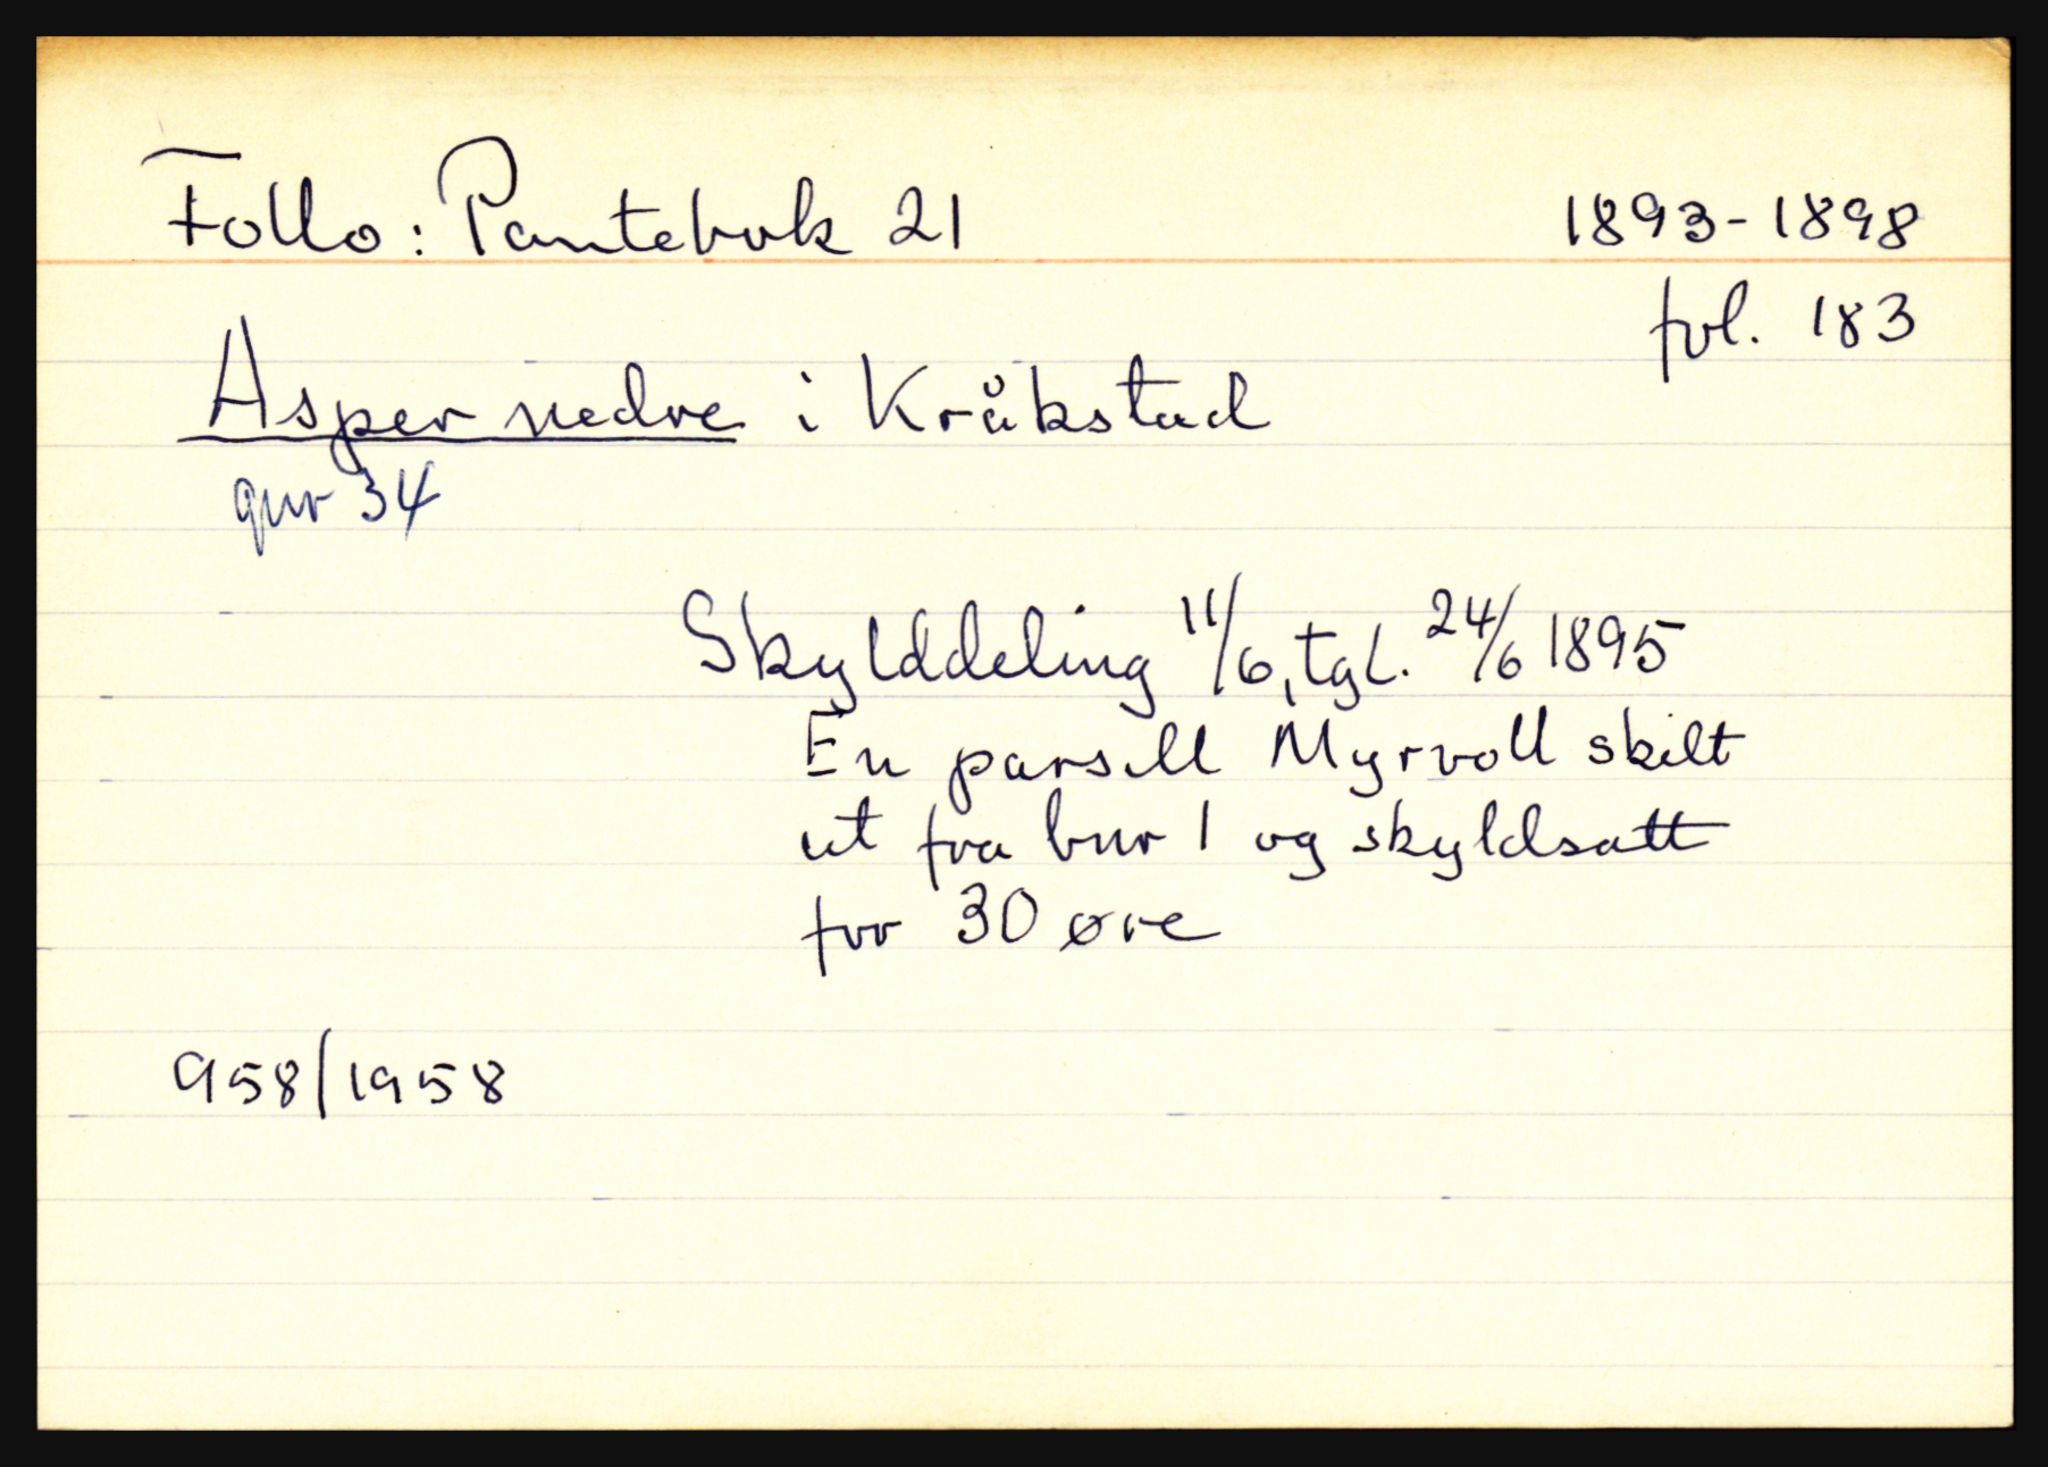 Follo: Pantebok 21 1893-1898
fol. 183
Asper nedre i Kråkstad
gnr 34
Skylddeling 11/6, tgl. 24/6 1895
En parsell Myrvoll skilt
ut fra bnr 1 og skyldsatt
for 30 øre
958/1958